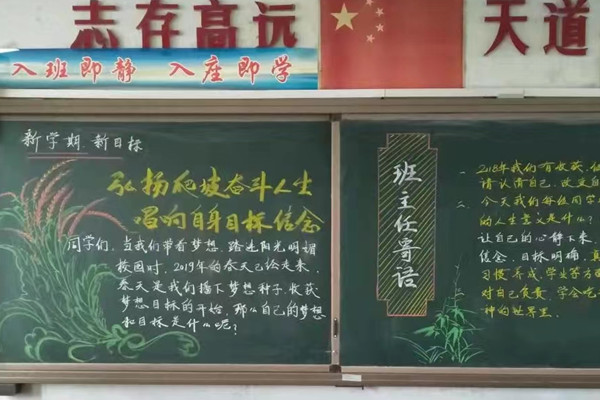 志存高远
天道
入班即静 入座即学
新学期 新目标
弘扬爬坡奋斗人生
唱响自身目标信念
同学们，当我们带着梦想，踏进阳光明媚
校园时，2019年的春天已经走来，
春天是我们播下梦想种子，收获
梦想目标的开始，那么自己的梦想
和目标是什么呢？
班主任寄语
一、2018年我们有收获，
请认清自己，改变自
二、今天我们每位同学
的人生意义是什么？
让自己的心静下来，
信念，目标明确，真
习惯养成，学生等方面
对自己负责，学会吃
神的世界里。